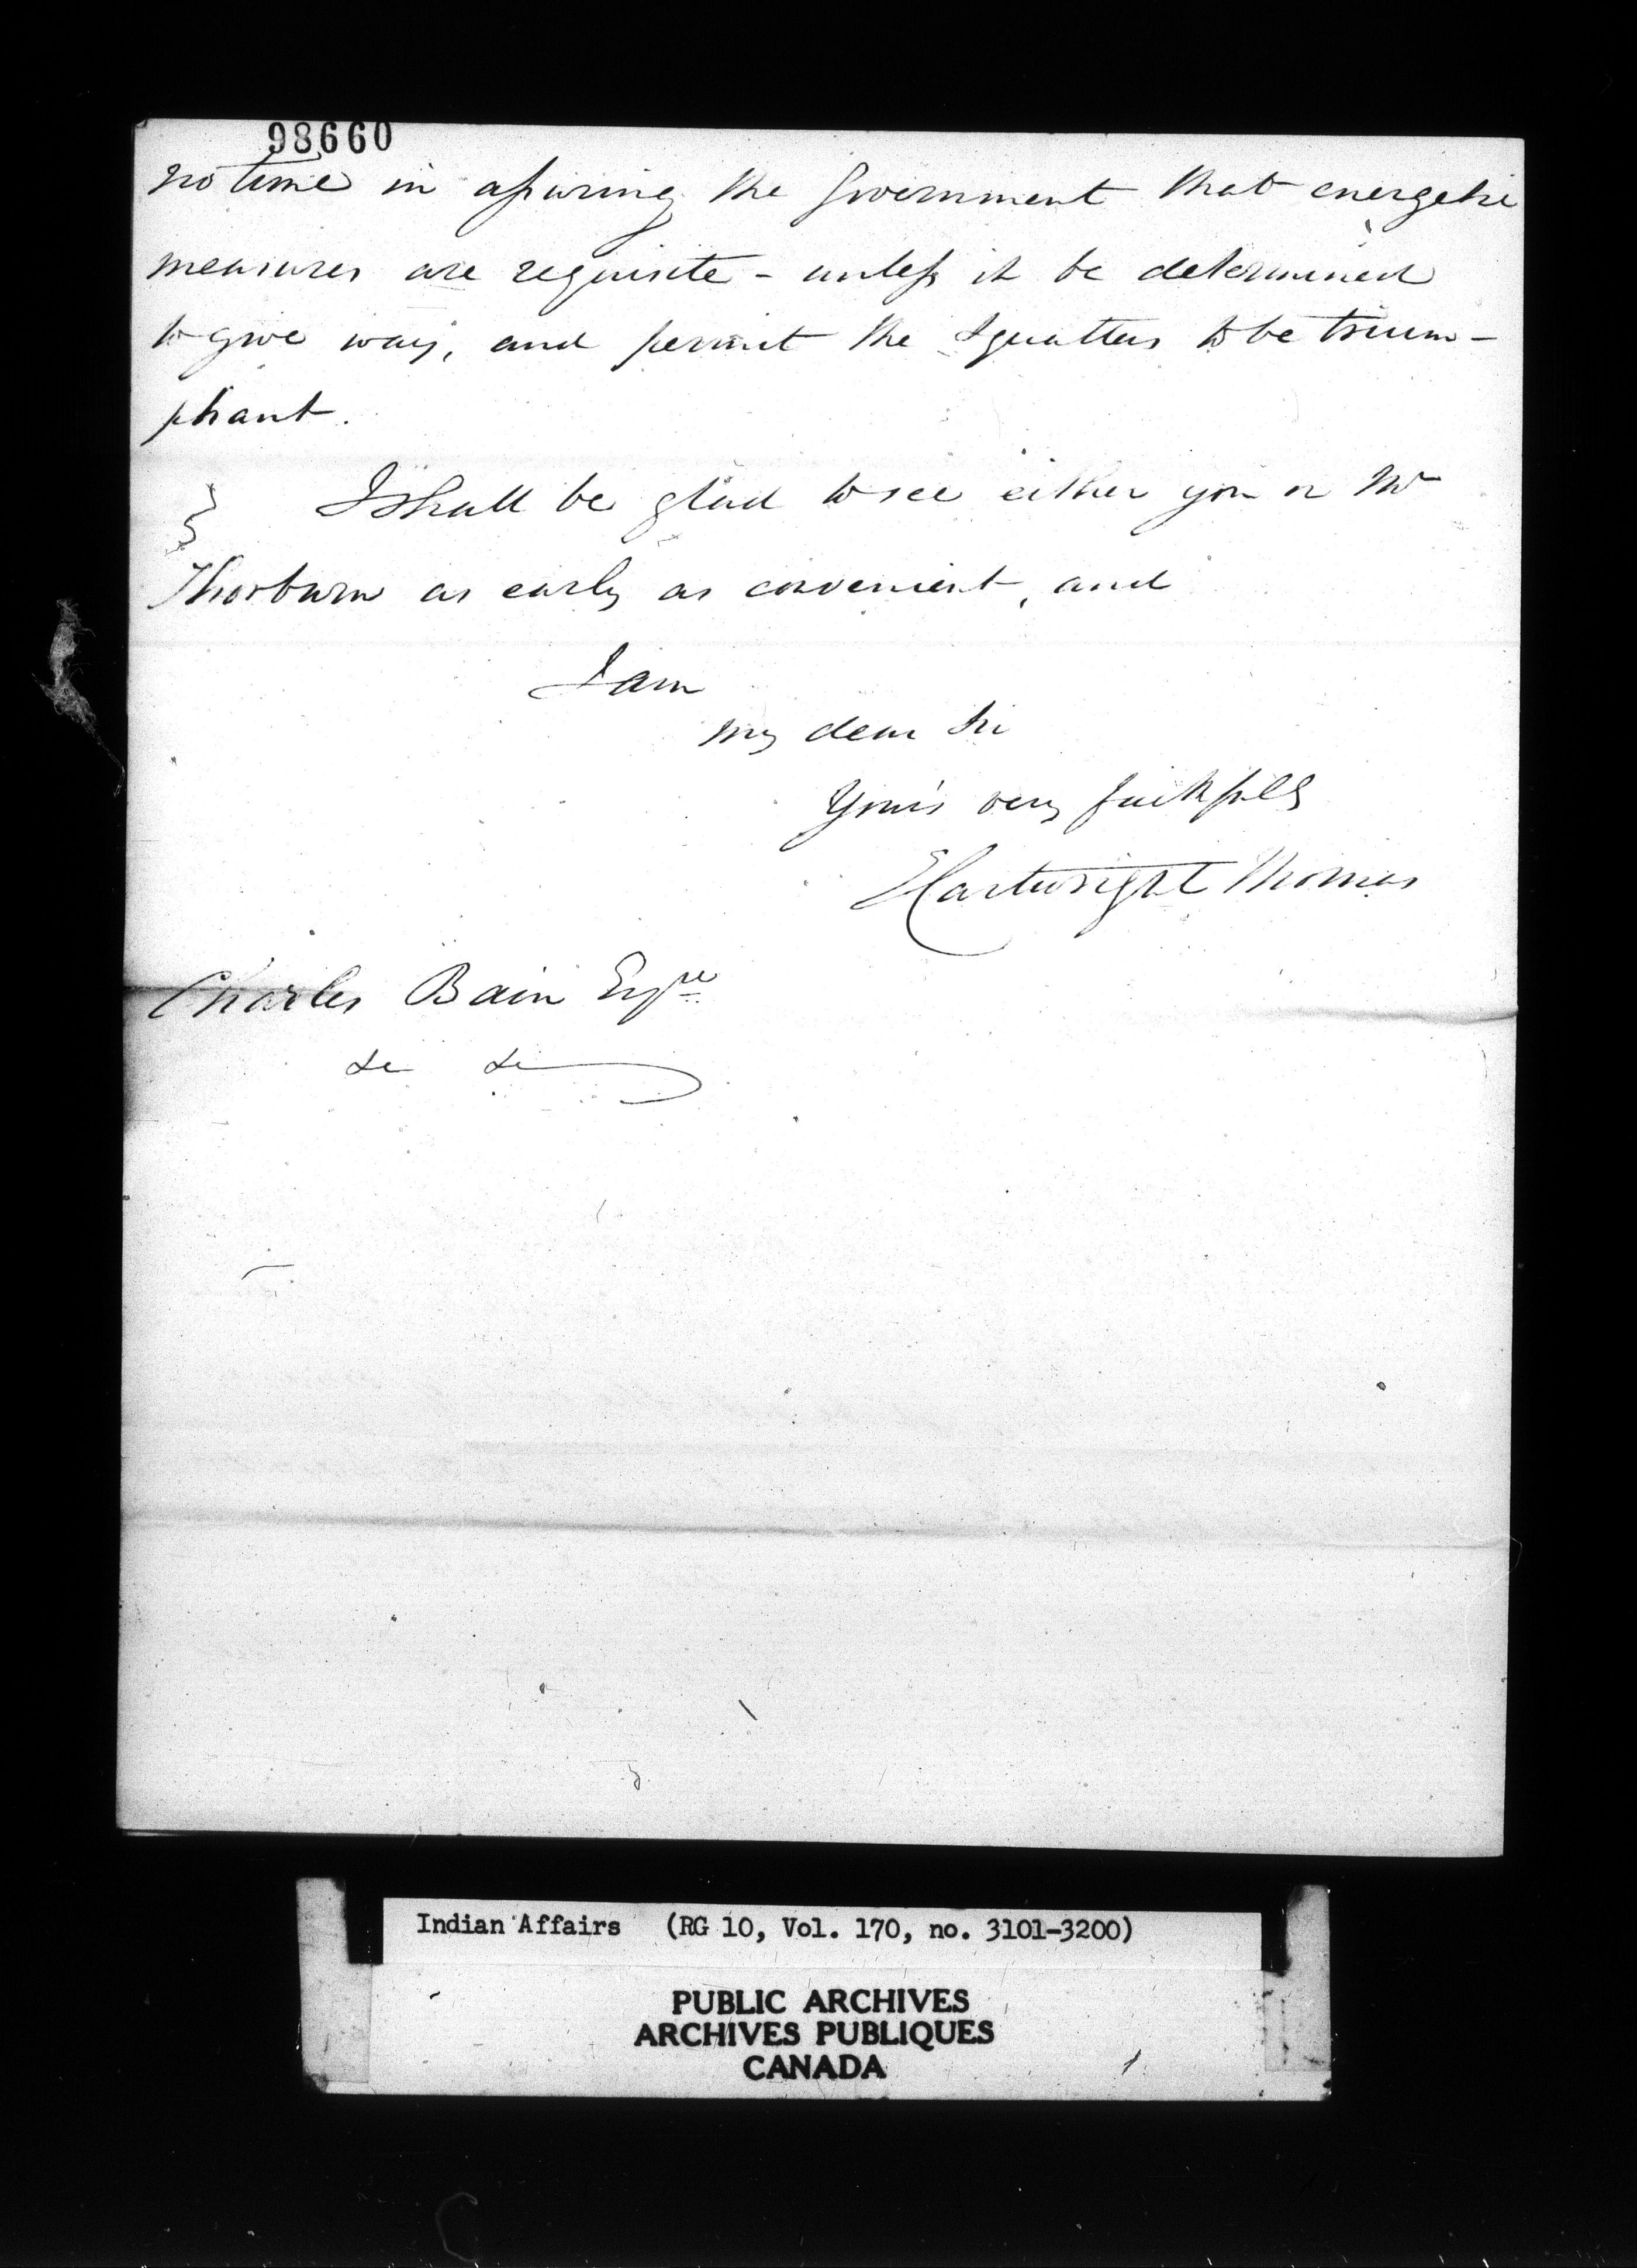 98660
no time in assuring the Government that energetic
measures are requisite - unless it be determined
to give way, and permit the Squatters to be trium-
phant.
I shall be glad to see either you or Mr
Thorburn as early as convenient, and
I am
my dear Sir
Yours very faithfully
E Cartwright Thomas
Charles Bain Esqre
&c &c
Indian Affairs (RG 10, Vol. 170, no. 3101-3200)
PUBLIC ARCHIVES
ARCHIVES PUBLIQUES
CANADA